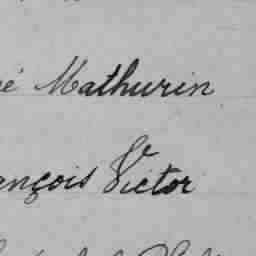 é Mathurin
ançois Victor